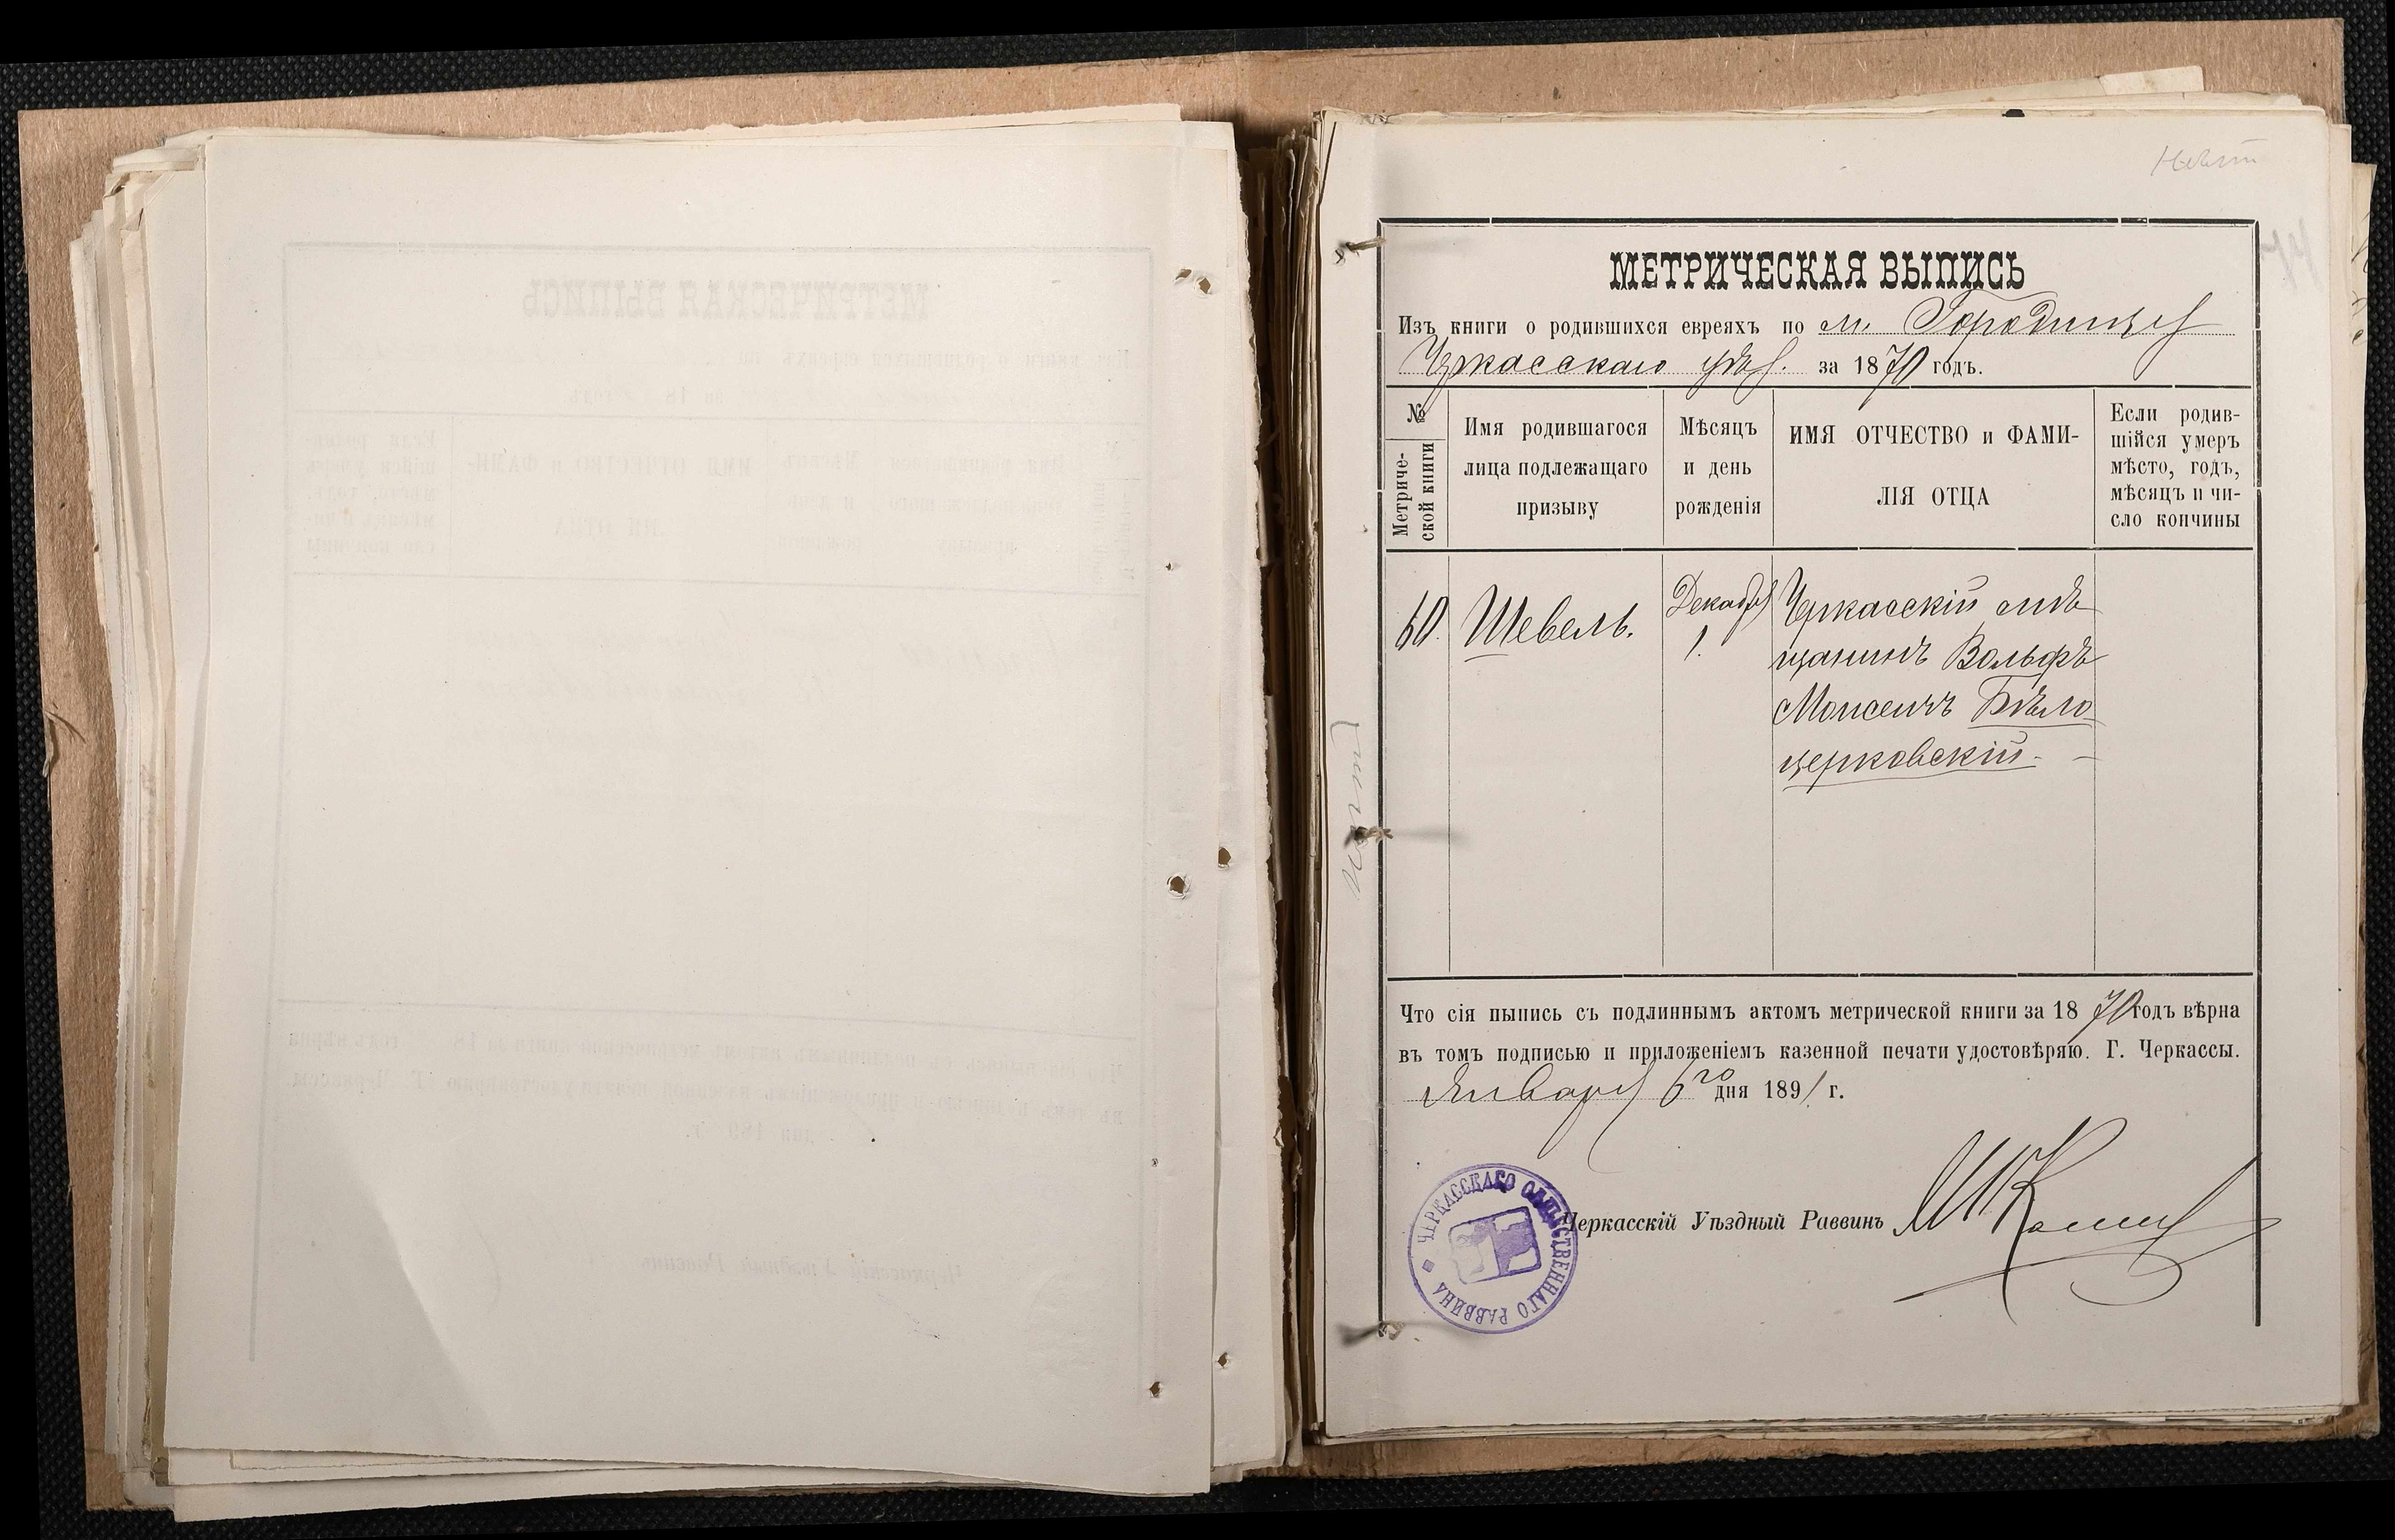 Нѣтъ
МЕТРИЧЕСКАЯ ВЫПИСЬ
Изъ книги о родившихся евреяхъ по м. Городищу
Черкасскаго уѣз. за 1870 годъ.
№
Метриче-
ской книги
Имя родившагося
лица подлежащаго
призыву
Мѣсяцъ
и день
рожденія
ИМЯ ОТЧЕСТВО и ФАМИ-
ЛІЯ ОТЦА
Если родив-
шійся умеръ
мѣсто, годъ,
мѣсяцъ и чи-
сло кончины
60.
Шевель.
Декабря
1.
Черкасскій мѣ
щанинъ Вольфъ
Моисеичъ Бѣло
церковскій. –
Что сія выпись съ подлиннымъ актомъ метрической книги за 1870 годъ вѣрна
въ томъ подписью и приложеніемъ казенной печати удостовѣряю. Г. Черкассы.
Января 6го дня 1891 г.
Черкасскій Уѣздный Раввинъ
ЧЕРКАССКАГО ОБЩЕСТВЕННАГО РАВВИНА